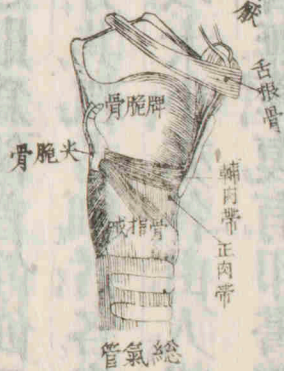 舌根骨
骨脆牌
骨脆夾
輔肉帶
正肉帶
戒指骨
管氣總